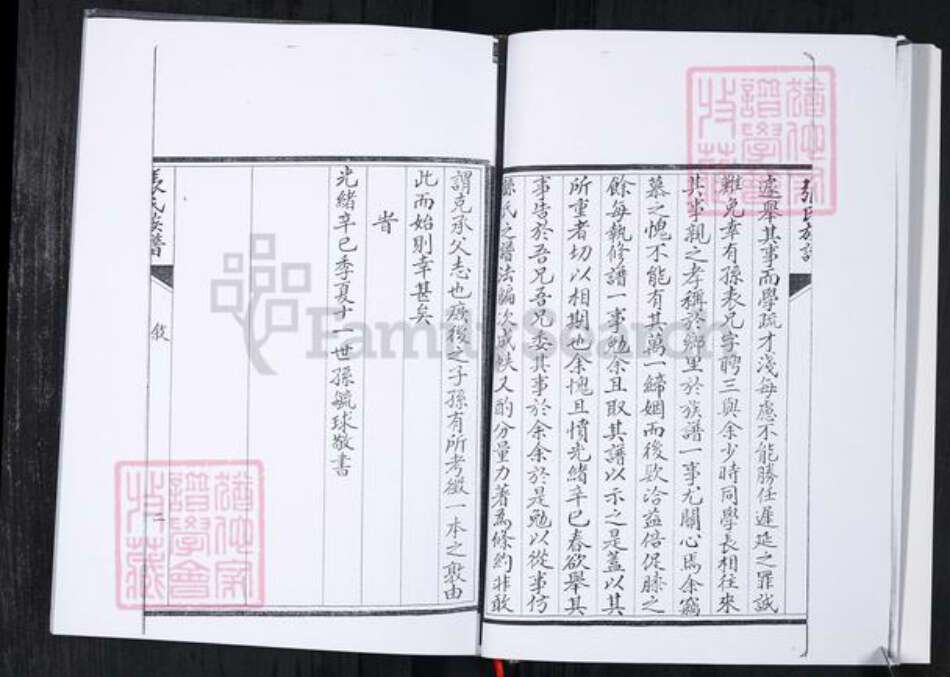 張氏族譜
遽舉其事而學疏才淺每慮不能勝任遲延之罪誠
難免幸有孫表兄字聘三與余少時同學長相往來
其事親之孝稱於鄉里於族譜一事尤關心焉余竊
慕之愧不能有其萬一締姻而後歡洽益倍促膝之
餘每執修譜一事勉余且取其譜以示之是蓋以其
所重者切以相期也余愧且憤光緒辛巳春欲舉其
事告於吾兄吾兄委其事於余余於是勉以從事仿
孫氏之譜法編次成帙又酌分量力著為條約非敢
謂克承父志也庶後之子孫有所考徵一本之敦由
此而始則幸甚矣
旹
光緒辛巳季夏十一世孫毓球敬書
張氏族譜
敘
二
猶他家
譜學會
收藏
猶他家
譜學會
收藏
FamilySearch